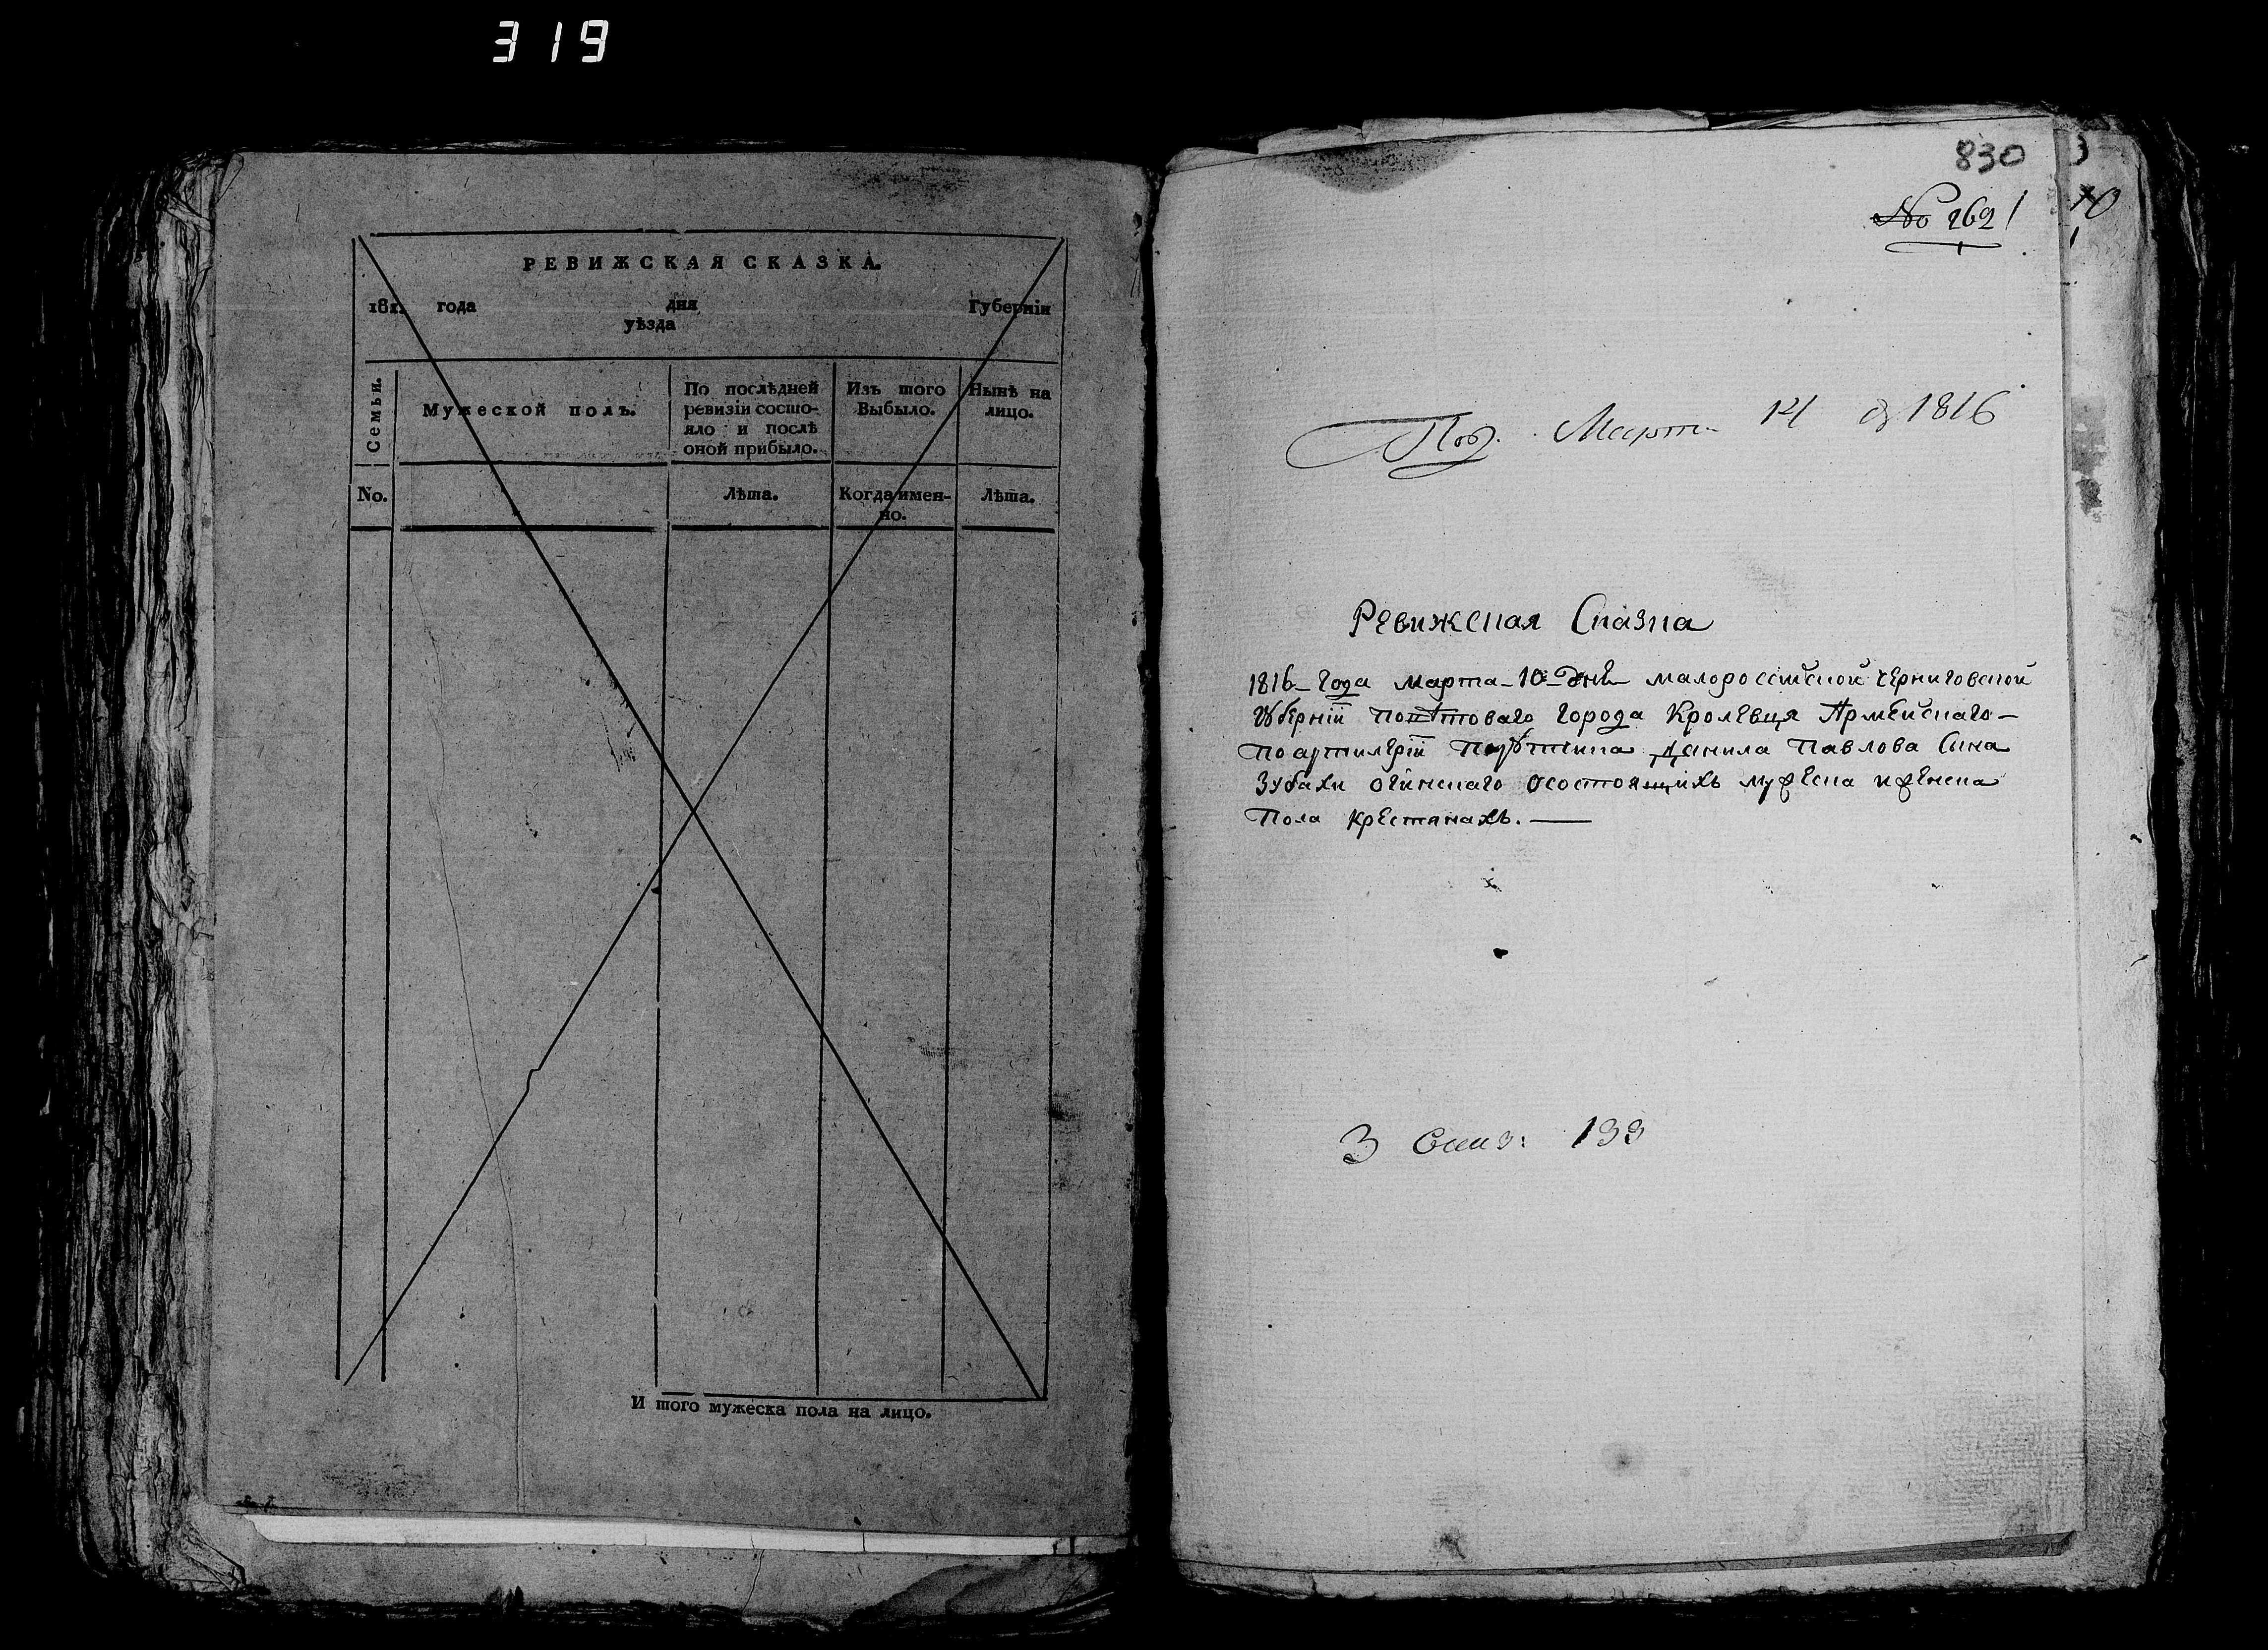 319
РЕВИЖСКАЯ СКАЗКА.
181 года дня Губерніи
уѣзда
Семьи.
Мужеской полъ.
По послѣдней
ревизіи состо-
яло и послѣ
оной прибыло.
Изъ того
Выбыло.
Нынѣ на
лицо.
No.
Лѣта.
Когда имен-
но.
Лѣта.
И того мужеска пола на лицо.
830
No 262
Под. Март 14 д 1816
Ревижская Сказка
1816 года марта 10 дня малоросійской черниговской
губерніи поветоваго города Кролевця Армейскаго
по артилеріи Данила Павлова Сина
Зубахи огинскаго осостоящихъ мужеска иженска
пола крестянахъ.
3 133